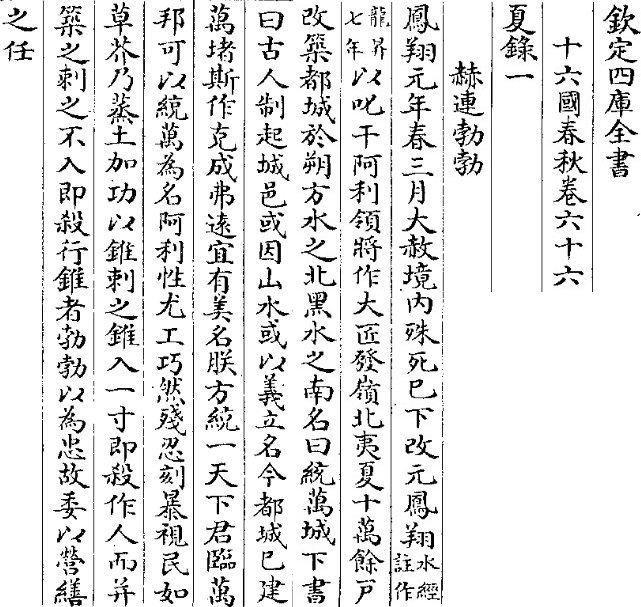 欽定四庫全書
十六國春秋卷六十六
夏錄一
赫連勃勃
鳳翔元年春三月大赦境内殊死已下改元鳳翔水經註作
龍昇七年以叱干阿利領將作大匠發嶺北夷夏十萬餘戸
改築都城於朔方水之北黑水之南名曰統萬城下書
曰古人制起城邑或因山水或以義立名今都城已建
萬堵斯作克成弗遠宜有美名朕方統一天下君臨萬
邦可以統萬為名阿利性尤工巧然殘忍刻暴視民如
草芥乃蒸土加功以錐刺之錐入一寸即殺作人而并
築之刺之不入即殺行錐者勃勃以為忠故委以營繕
之任